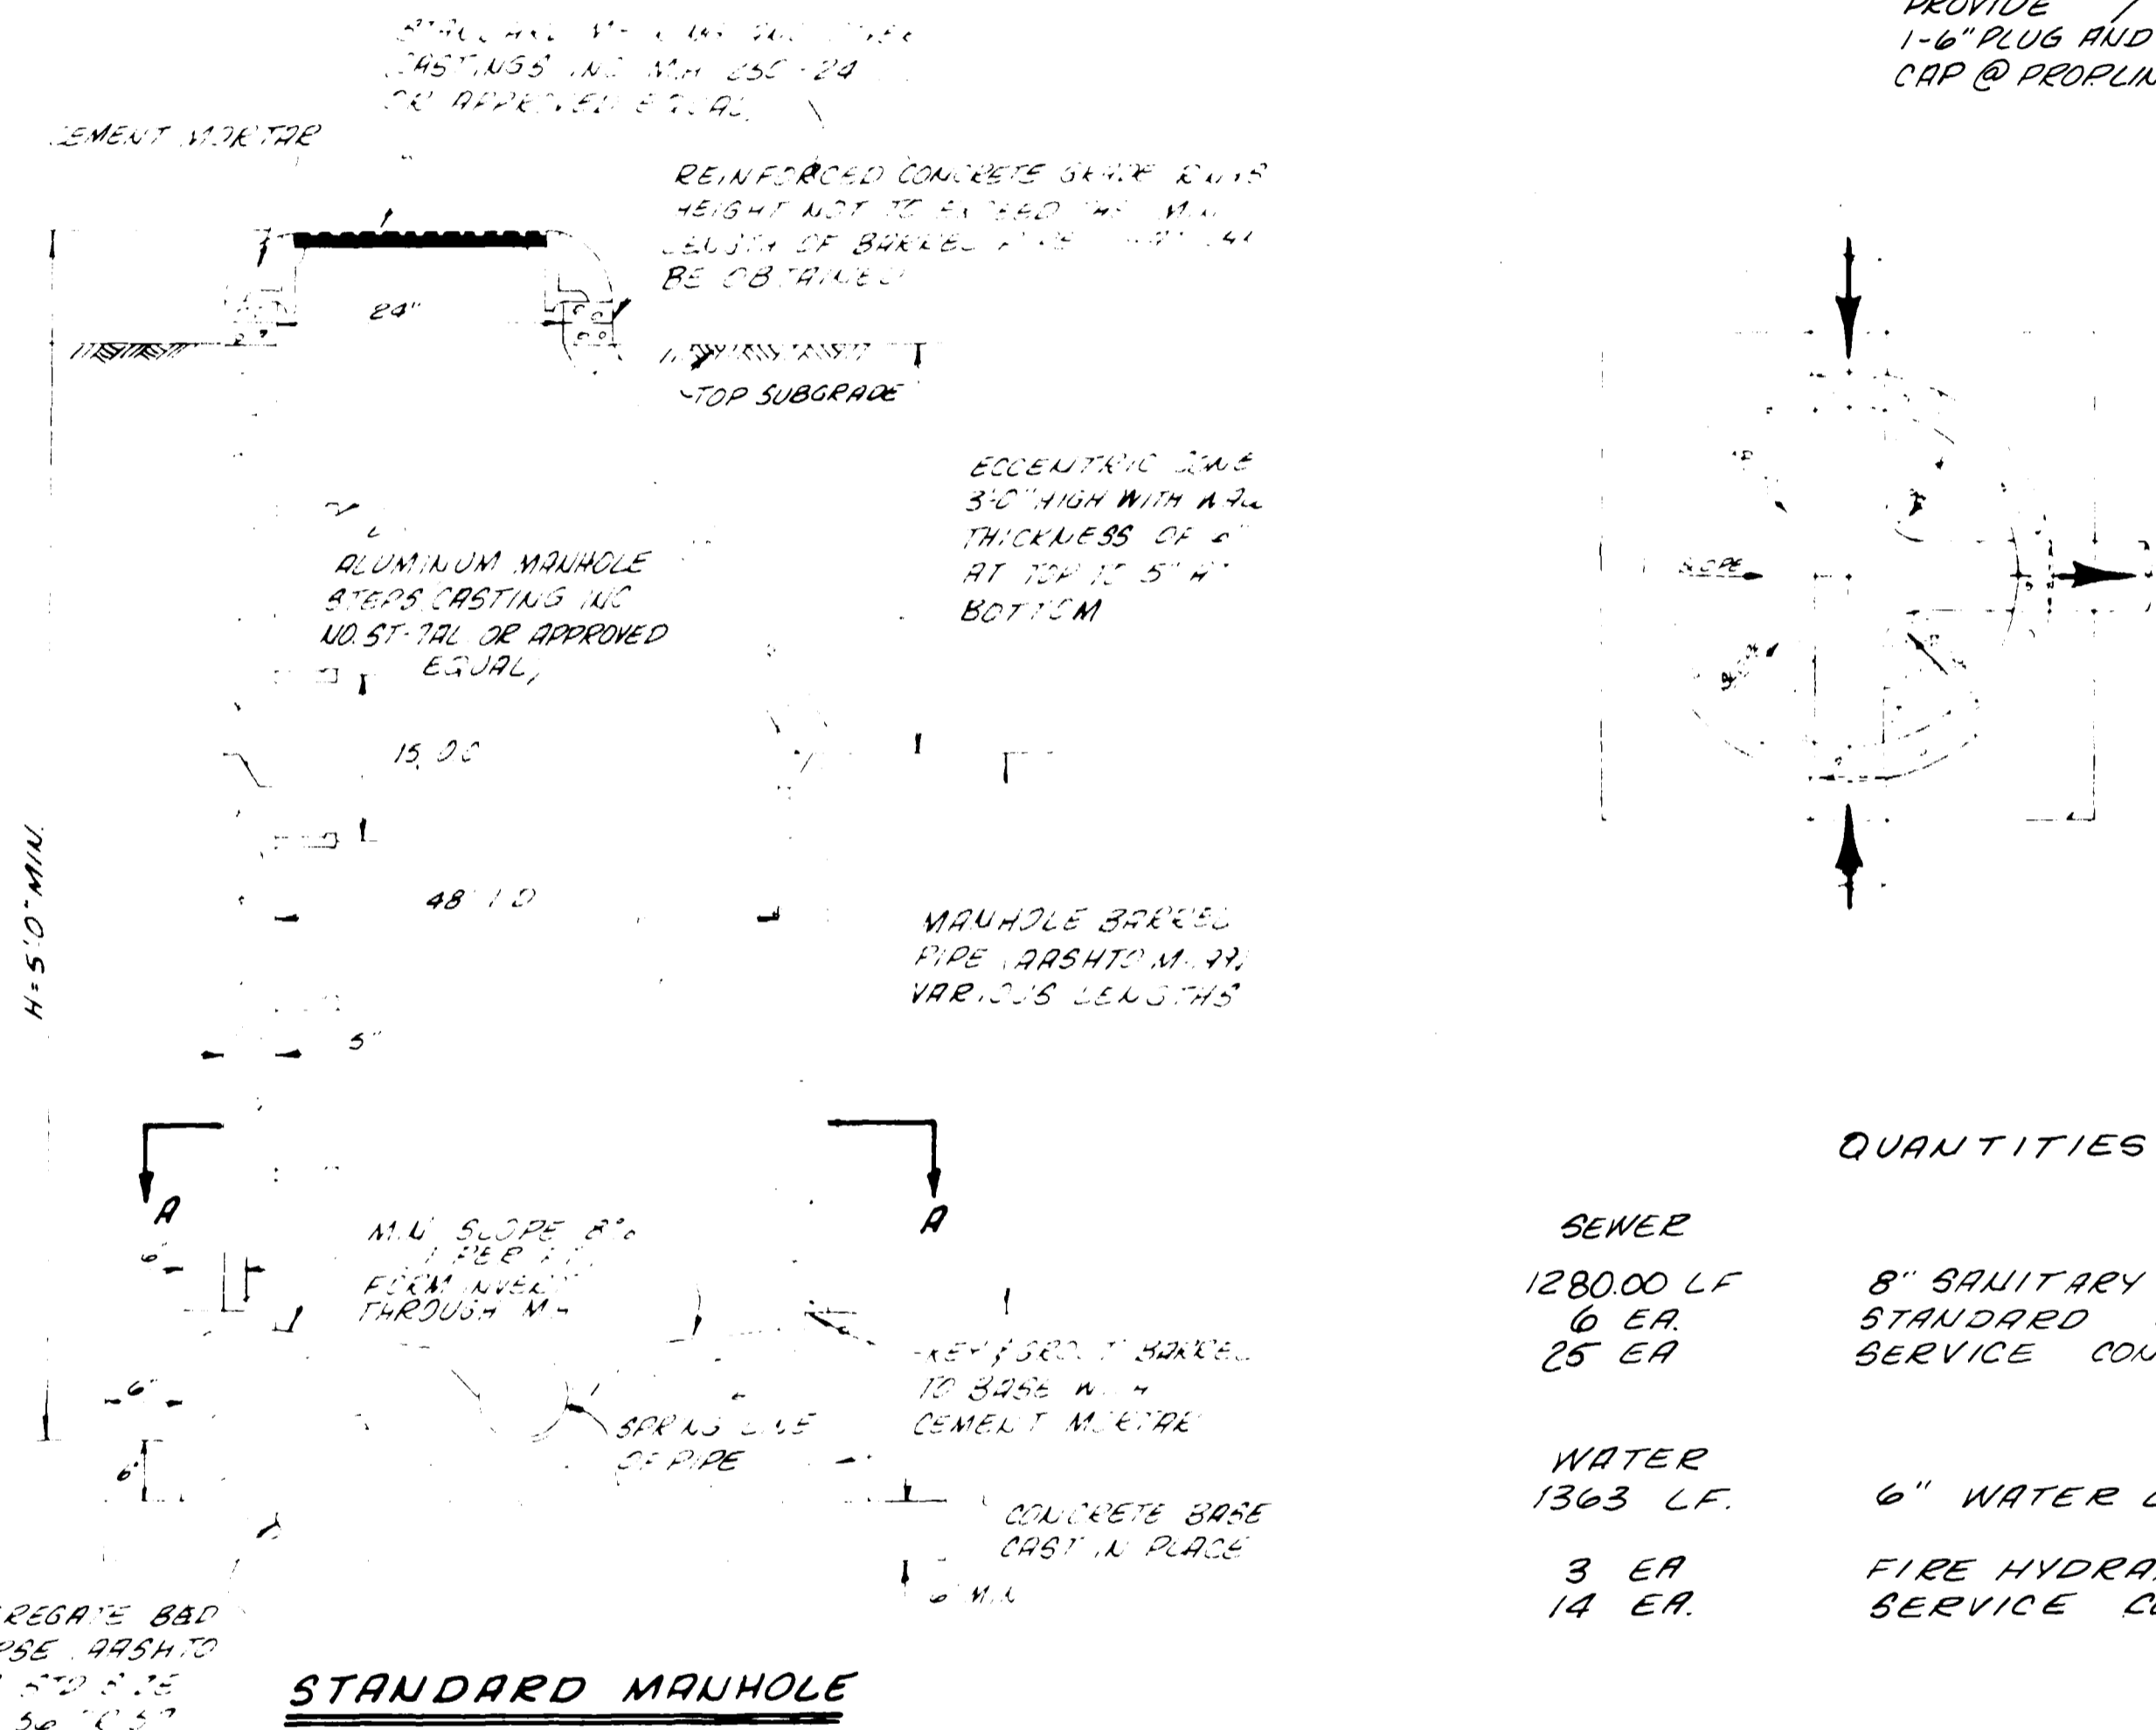 PROVIDE
1-6" PLUG AND
CAP @ PROP. LIN
CASTINGS INC MH 250-24
OR APPROVED EQUAL
CEMENT MORTAR
REINFORCED CONCRETE GRADE RINGS
HEIGHT NOT TO EXCEED THE MIN
LENGTH OF BARREL PIPE THAT CAN
BE OBTAINED
24"
TOP SUBGRADE
ECCENTRIC CONE
3'-0" HIGH WITH WALL
THICKNESS OF
AT TOP TO 5" AT
BOTTOM
ALUMINUM MANHOLE
STEPS, CASTING INC
NO. ST-7AL OR APPROVED
EQUAL,
15" O.C.
48" I.D.
H=5'-0" MIN.
MANHOLE BARREL
PIPE (AASHTO
VARIOUS LENGTHS
5"
A A
MIN SLOPE 8%
1" PER FT.
FORM INVERT
THROUGH MH
6"
6"
6"
KEY & GROUT BARREL
TO BASE WITH
CEMENT MORTAR
SPRING LINE
OF PIPE
CONCRETE BASE
CAST IN PLACE
6" MIN
REGATE BED
AASHTO
STD SIZE
56 OR 57
STANDARD MANHOLE
SLOPE
QUANTITIES
SEWER
1280.00 LF 8" SANITARY
6 EA. STANDARD
25 EA SERVICE CON
WATER
1363 LF. 6" WATER
3 EA FIRE HYDRA
14 EA. SERVICE CO